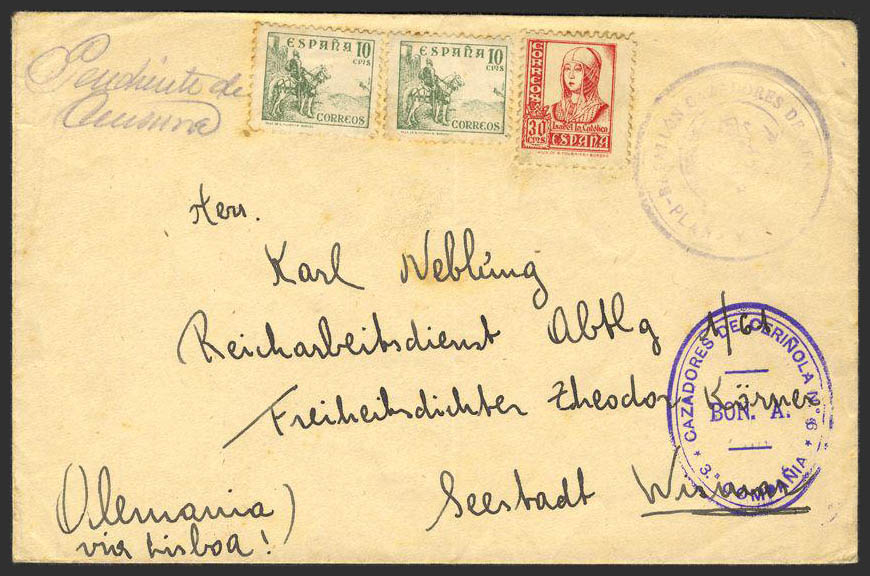 Pendiente de
Censura
ESPAÑA 10
CTS
CORREOS
ESPAÑA 10
CTS
CORREOS
CORREOS
30
CTS
Isabel la Católica
ESPAÑA
CAZADORES DE
PLANA
Herr.
Karl Neblüng
Reicharbeitsdienst Abtlg 1/61
Freiheitsdichter Theodor Körner
Seestadt Wismar
(Alemania)
via Lisboa!
CAZADORES DE CERIÑOLA Nº 6
BON. A.
3ª COMPAÑIA